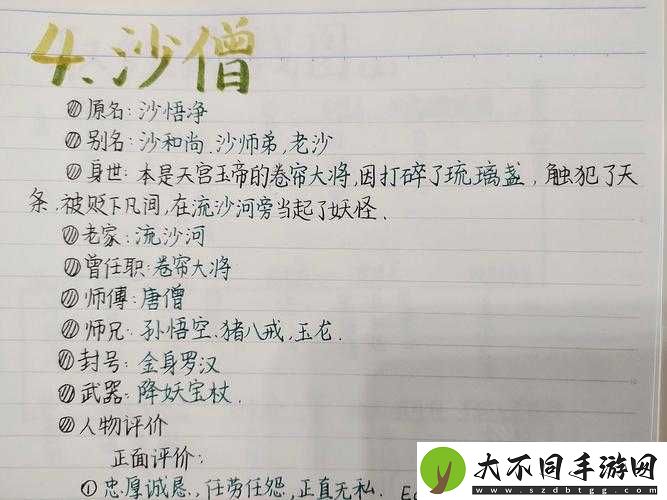 4、沙僧
原名：沙悟净
别名：沙和尚、沙师弟、老沙
身世：本是天宫玉帝的卷帘大将，因打碎了琉璃盏，触犯了天
条、被贬下凡间，在流沙河旁当起了妖怪、
老家：流沙河
曾任职：卷帘大将
师傅：唐僧
师兄：孙悟空、猪八戒，玉龙.
封号：金身罗汉
武器：降妖宝杖.
人物评价
正面评价：
①忠厚诚恳、任劳任怨，正直无私.
大不同手游网
www.szdbtbgg.com